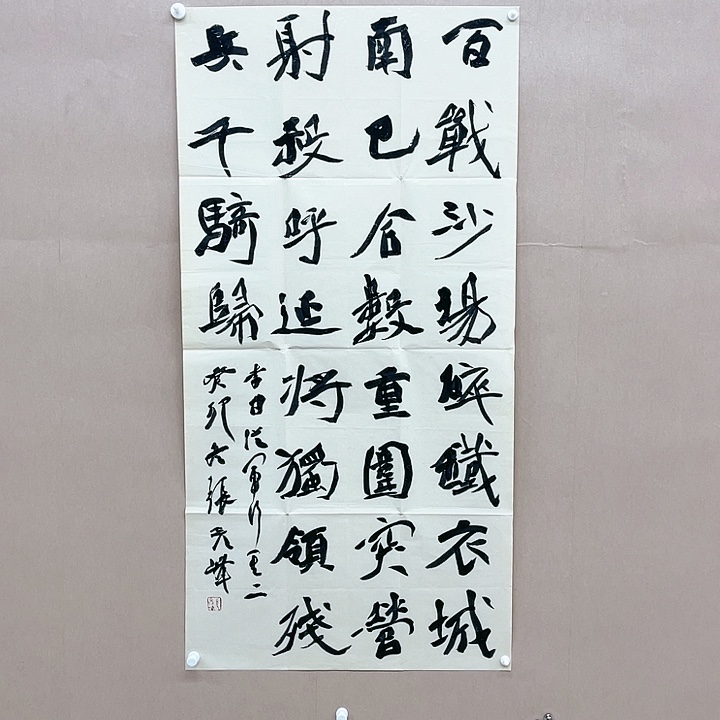 百戰沙場碎鐵衣城
南已合數重圍突營
射殺呼延將獨領殘
兵千騎歸
李白從軍行其二
癸卯張峰